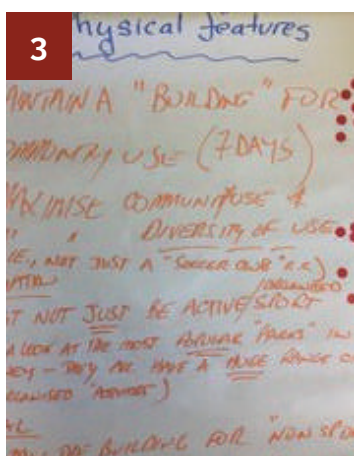 3
hysical features
AINTAIN A "BUILDING" FOR
OMMUNITY USE (7 DAYS)
XIMISE COMMUNITY USE &
" " DIVERSITY OF USE
IE, NOT JUST A "SOCCER CLUB"
T NOT JUST BE ACTIVE/SPORT
A LOOK AT THE MOST POPULAR "PARKS" IN
NEY - THEY ALL HAVE A HUGE RANGE O
BUILDING FOR "NON SPO